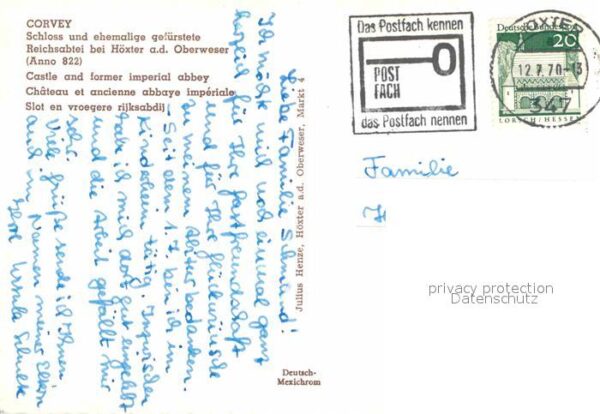 CORVEY
Schloss und ehemalige gefürstete
Reichsabtei bei Höxter a.d. Oberweser
(Anno 822)
Castle and former imperial abbey
Château et ancienne abbaye impériale
Slot en vroegere rijksabdij
Liebe Familie
Ich möchte mich noch einmal ganz
herzlich für Ihre Gastfreundschaft
und für Ihre Glückwünsche
zu meinem Abitur bedanken.
Seit dem 1.7. bin ich im
Kinderheim tätig. Inzwischen
habe ich mich dort gut eingelebt
und die Arbeit gefällt mir
sehr.
Viele Grüße sende ich Ihnen
auch im Namen meiner Eltern
Ihre Ursula
Julius Henze, Höxter a.d. Oberweser, Markt 4
Deutsch-
Mexichrom
Das Postfach kennen
POST
FACH
das Postfach nennen
HÖXTER
12.7.70-13
347
Deutsche Bundespost
20
LORSCH/HESSEN
Familie
privacy protection
Datenschutz